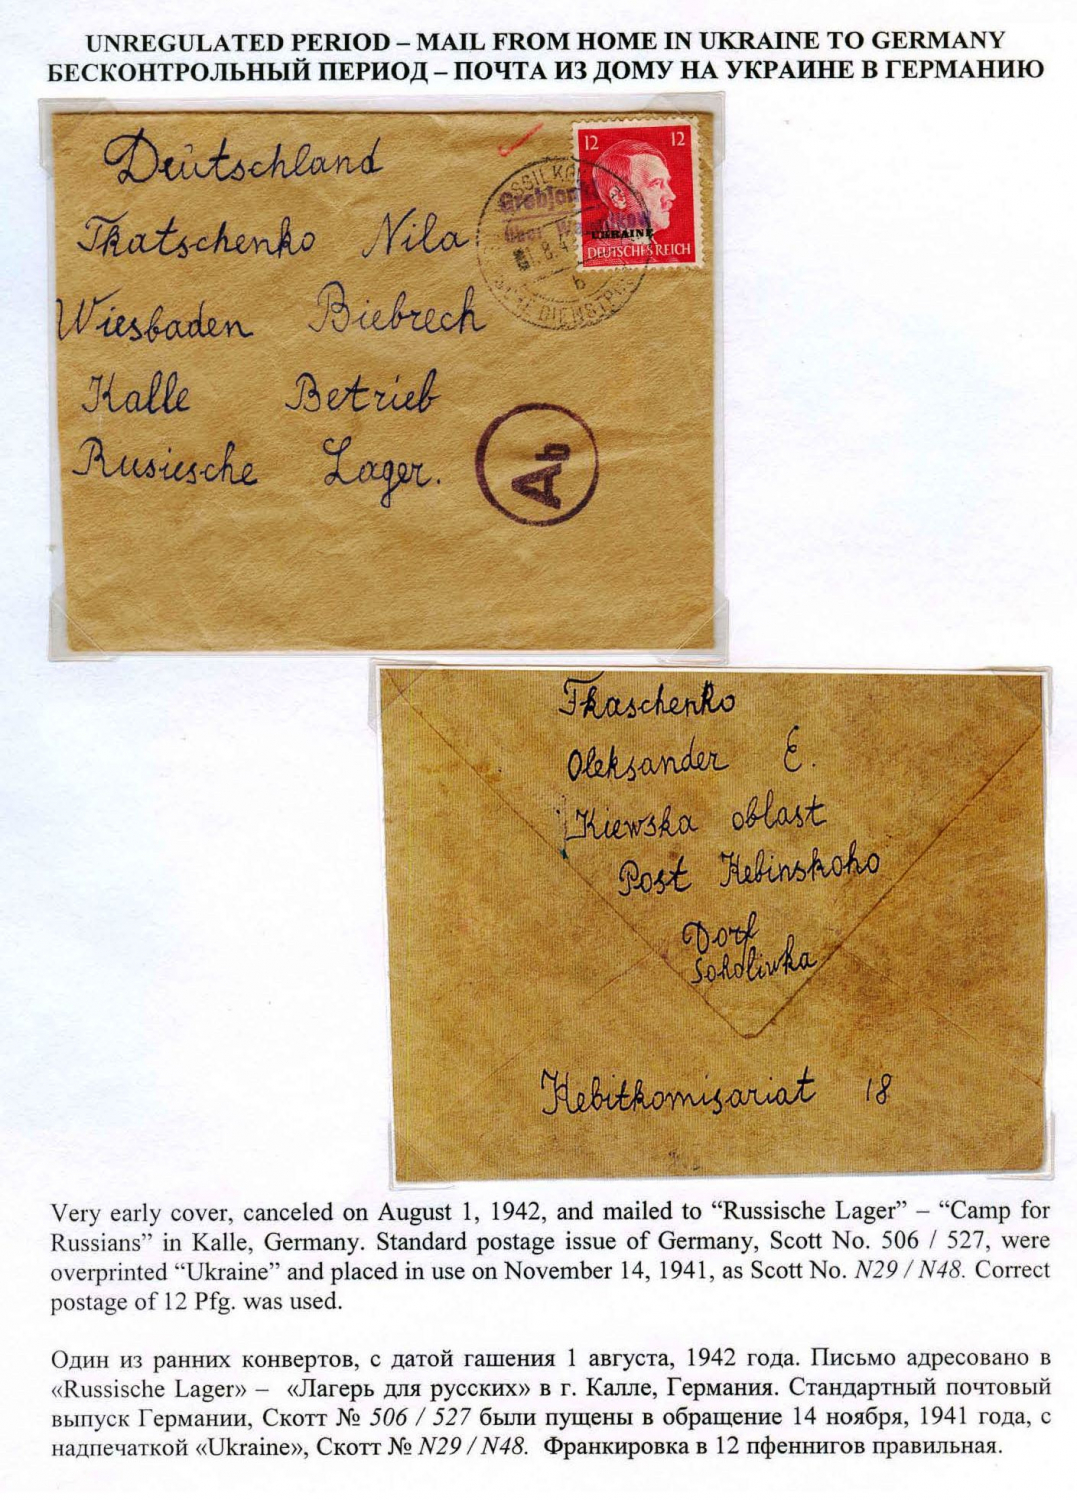 UNREGULATED PERIOD – MAIL FROM HOME IN UKRAINE TO GERMANY
БЕСКОНТРОЛЬНЫЙ ПЕРИОД – ПОЧТА ИЗ ДОМУ НА УКРАИНЕ В ГЕРМАНИЮ
Deutschland
Tkatschenko Nila
Wiesbaden Biebrech
Kalle Betrieb
Rusiesche Lager.
12 12
UKRAINE
DEUTSCHES REICH
b
Ab
Tkaschenko
Oleksander E.
Kiewska oblast
Post Hebinskoho
Dorf
Sokoliwka
Hebitkomisariat 18
Very early cover, canceled on August 1, 1942, and mailed to “Russische Lager” – “Camp for
Russians” in Kalle, Germany. Standard postage issue of Germany, Scott No. 506 / 527, were
overprinted “Ukraine” and placed in use on November 14, 1941, as Scott No. N29 / N48. Correct
postage of 12 Pfg. was used.
Один из ранних конвертов, с датой гашения 1 августа, 1942 года. Письмо адресовано в
«Russische Lager» – «Лагерь для русских» в г. Калле, Германия. Стандартный почтовый
выпуск Германии, Скотт № 506 / 527 были пущены в обращение 14 ноября, 1941 года, с
надпечаткой «Ukraine», Скотт № N29 / N48. Франкировка в 12 пфеннигов правильная.